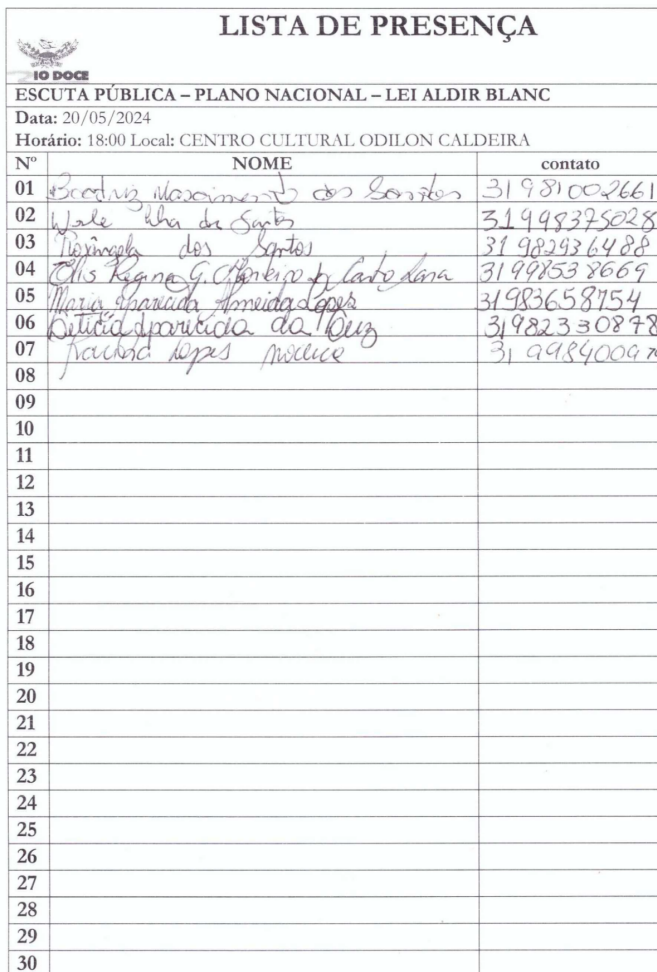 LISTA DE PRESENÇA
IO DOCE
ESCUTA PÚBLICA – PLANO NACIONAL – LEI ALDIR BLANC
Data: 20/05/2024
Horário: 18:00 Local: CENTRO CULTURAL ODILON CALDEIRA
Nº NOME contato
01 Beatriz Nascimento dos Santos 31981002661
02 dos Santos 31998375028
03 dos Santos 31 982936488
04 Regina G. 31998538669
05 Maria Aparecida Almeida Lopes 31983658754
06 Leticia Aparecida da Cruz 31982330878
07 Lopes 31
08
09
10
11
12
13
14
15
16
17
18
19
20
21
22
23
24
25
26
27
28
29
30